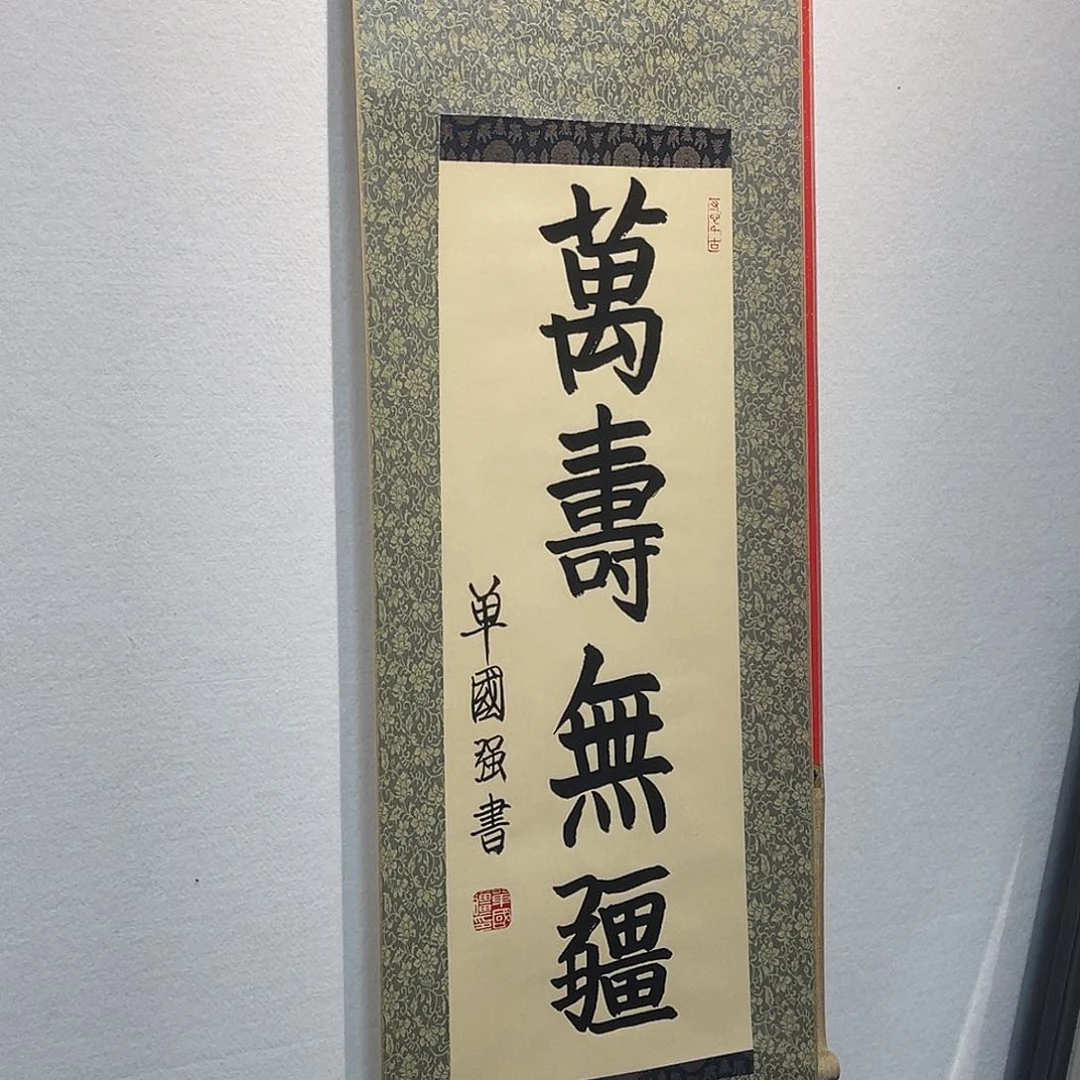 萬壽無疆
单國强書